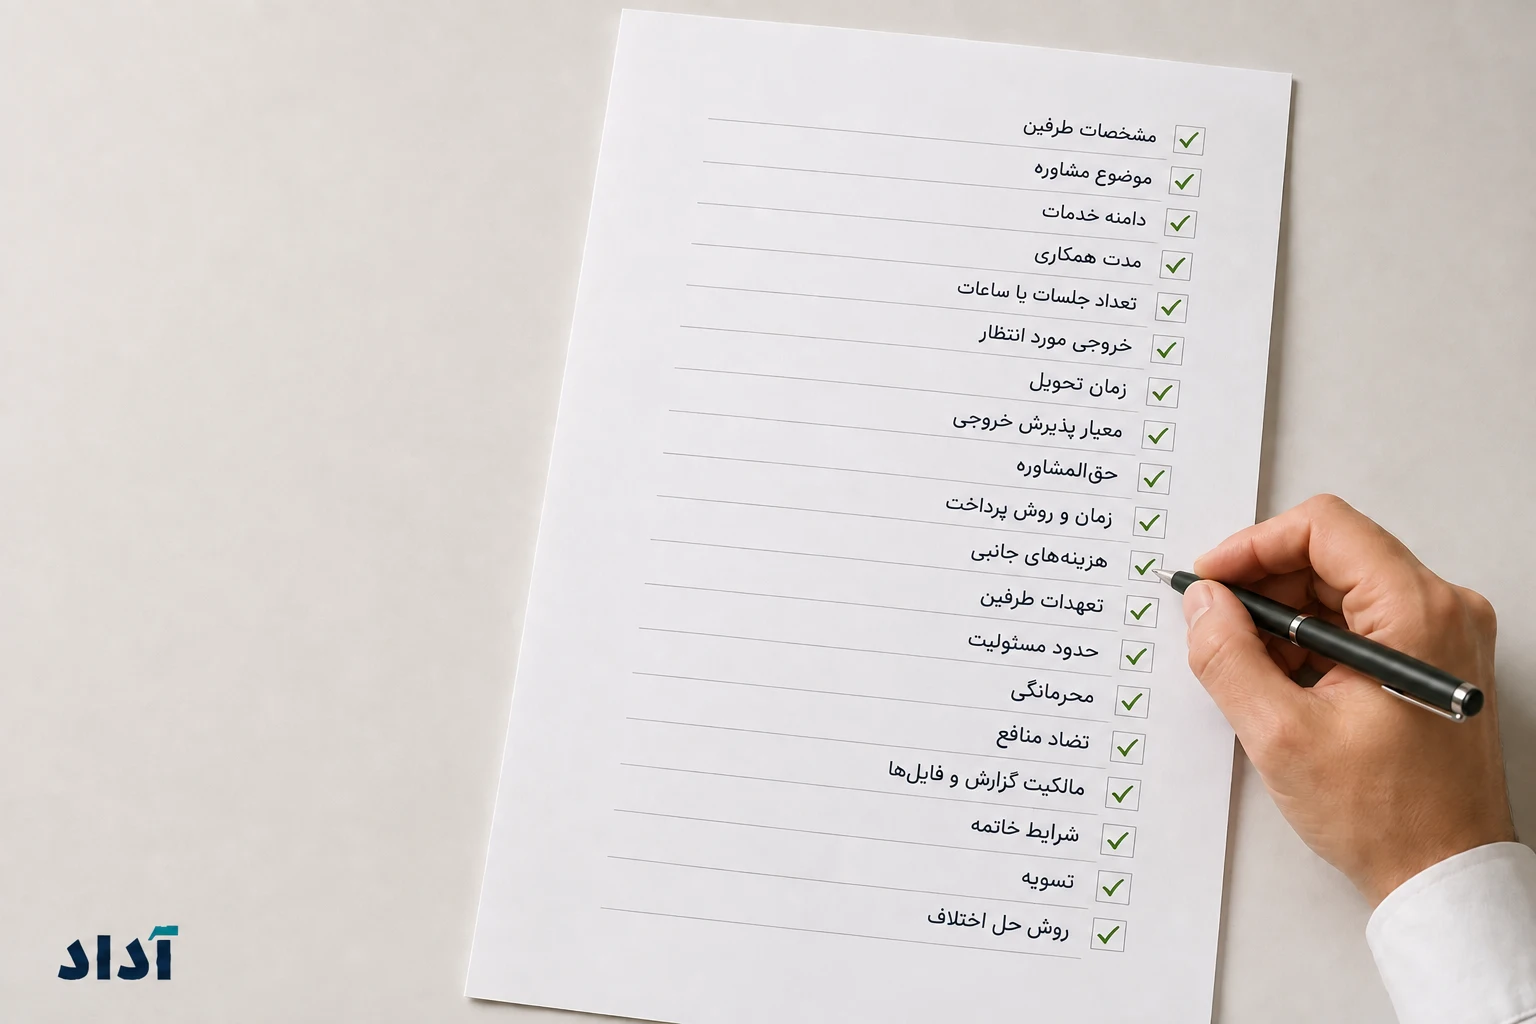 مشخصات طرفین
موضوع مشاوره
دامنه خدمات
مدت همکاری
تعداد جلسات یا ساعات
خروجی مورد انتظار
زمان تحویل
معیار پذیرش خروجی
حق‌المشاوره
زمان و روش پرداخت
هزینه‌های جانبی
تعهدات طرفین
حدود مسئولیت
محرمانگی
تضاد منافع
مالکیت گزارش و فایل‌ها
شرایط خاتمه
تسویه
روش حل اختلاف
آداد